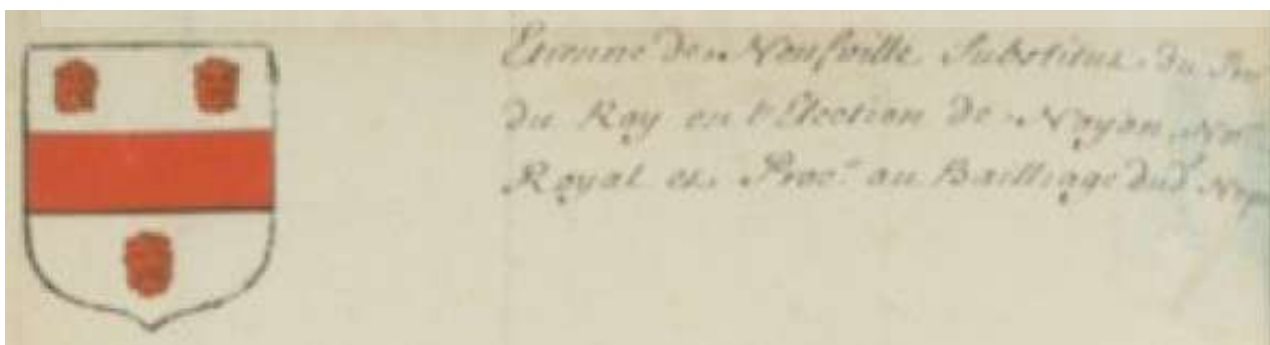 Etienne de Neufville Substitut du
du Roy en l'Election de Noyon
Royal et Proc.r au Bailliage dud.